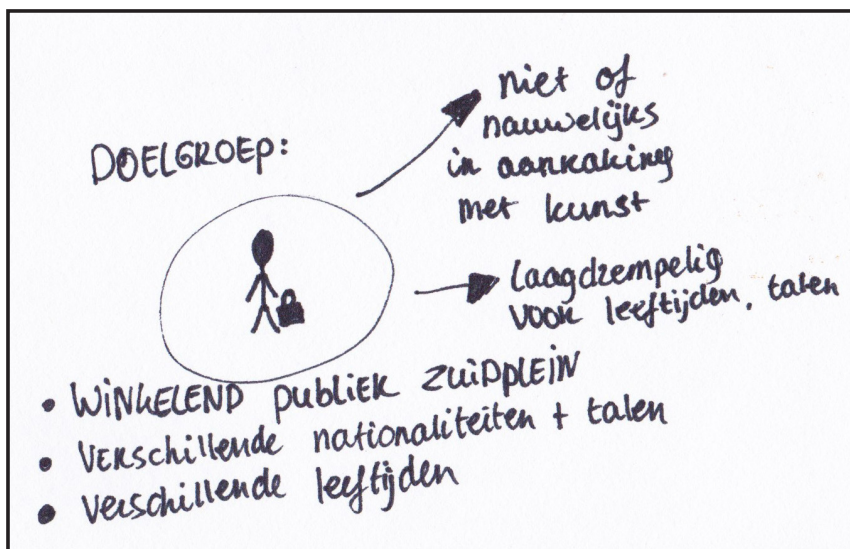 DOELGROEP:
niet of
nauwelijks
in aanraking
met kunst
laagdrempelig
voor leeftijden, talen
• WINKELEND publiek ZUIDPLEIN
• Verschillende nationaliteiten + talen
• Verschillende leeftijden